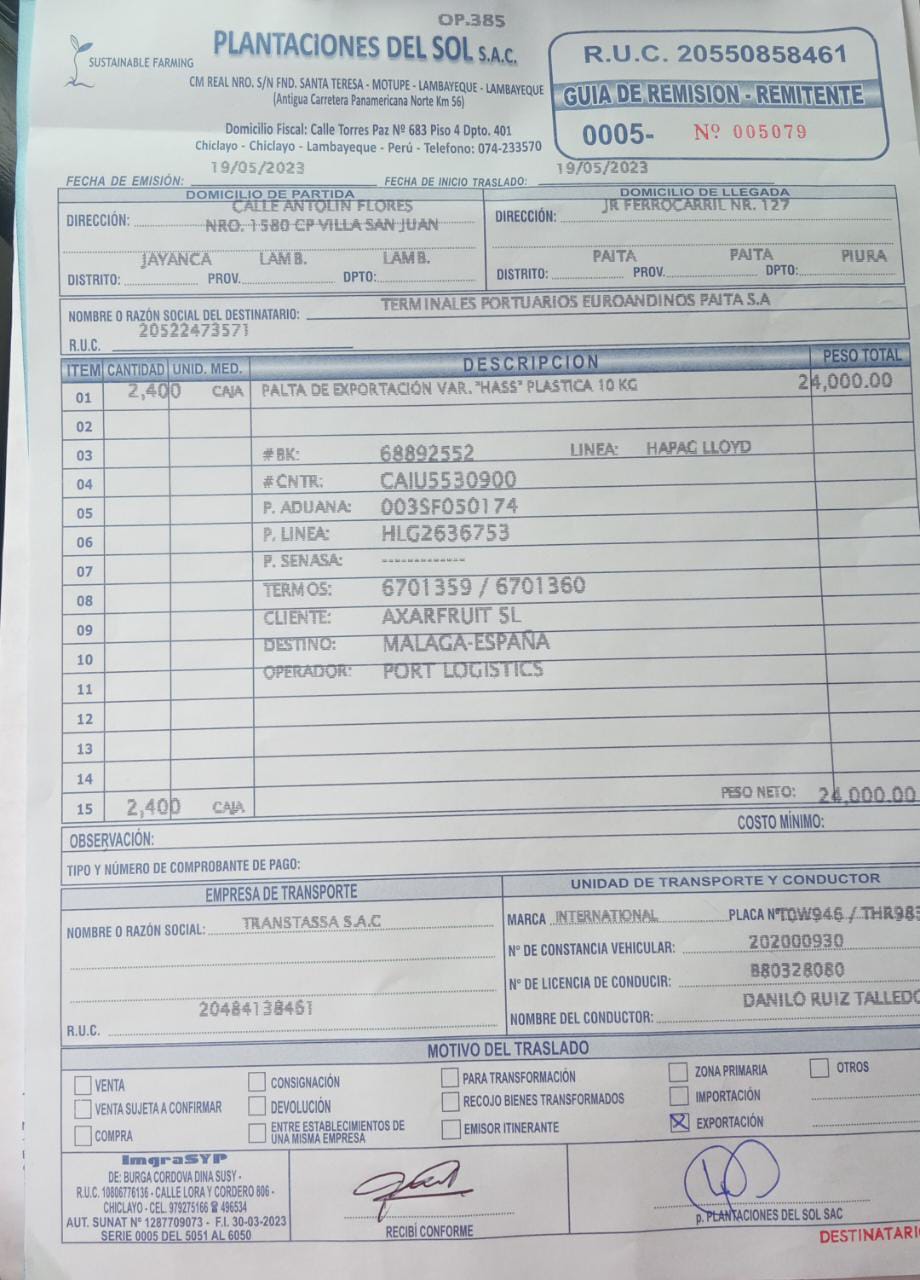 OP.385
SUSTAINABLE FARMING
PLANTACIONES DEL SOL S.A.C.
CM REAL NRO. S/N FND. SANTA TERESA - MOTUPE - LAMBAYEQUE - LAMBAYEQUE
(Antigua Carretera Panamericana Norte Km 56)
Domicilio Fiscal: Calle Torres Paz Nº 683 Piso 4 Dpto. 401
Chiclayo - Chiclayo - Lambayeque - Perú - Telefono: 074-233570
R.U.C. 20550858461
GUIA DE REMISION - REMITENTE
0005- Nº 005079
FECHA DE EMISIÓN: 19/05/2023 FECHA DE INICIO TRASLADO: 19/05/2023
DOMICILIO DE PARTIDA
DIRECCIÓN: CALLE ANTOLIN FLORES
NRO. 1580 CP VILLA SAN JUAN
JAYANCA LAMB. LAMB.
DISTRITO: PROV. DPTO:
DOMICILIO DE LLEGADA
DIRECCIÓN: JR FERROCARRIL NR. 127
PAITA PAITA PIURA
DISTRITO: PROV. DPTO:
NOMBRE O RAZÓN SOCIAL DEL DESTINATARIO: TERMINALES PORTUARIOS EUROANDINOS PAITA S.A
R.U.C. 20522473571
ITEM CANTIDAD UNID. MED. DESCRIPCION PESO TOTAL
01 2,400 CAJA PALTA DE EXPORTACIÓN VAR. "HASS" PLASTICA 10 KG 24,000.00
02
03 #BK: 68892552 LINEA: HAPAG LLOYD
04 #CNTR: CAIU5530900
05 P. ADUANA: 003SF050174
06 P. LINEA: HLG2636753
07 P. SENASA: -------------
08 TERMOS: 6701359 / 6701360
09 CLIENTE: AXARFRUIT SL
10 DESTINO: MALAGA-ESPAÑA
11 OPERADOR: PORT LOGISTICS
12
13
14
15 2,400 CAJA PESO NETO: 24,000.00
OBSERVACIÓN: COSTO MÍNIMO:
TIPO Y NÚMERO DE COMPROBANTE DE PAGO:
EMPRESA DE TRANSPORTE
NOMBRE O RAZÓN SOCIAL: TRANSTASSA S.A.C
R.U.C. 20484138461
UNIDAD DE TRANSPORTE Y CONDUCTOR
MARCA INTERNATIONAL PLACA Nº TQW946 / THR983
Nº DE CONSTANCIA VEHICULAR: 202000930
Nº DE LICENCIA DE CONDUCIR: B80328080
NOMBRE DEL CONDUCTOR: DANILO RUIZ TALLEDO
MOTIVO DEL TRASLADO
VENTA CONSIGNACIÓN PARA TRANSFORMACIÓN ZONA PRIMARIA OTROS
VENTA SUJETA A CONFIRMAR DEVOLUCIÓN RECOJO BIENES TRANSFORMADOS IMPORTACIÓN
COMPRA ENTRE ESTABLECIMIENTOS DE UNA MISMA EMPRESA EMISOR ITINERANTE X EXPORTACIÓN
ImgraSYP
DE: BURGA CORDOVA DINA SUSY -
R.U.C. 10806776136 - CALLE LORA Y CORDERO 806 -
CHICLAYO - CEL. 979275166 ☎ 496534
AUT. SUNAT Nº 1287709073 - F.I. 30-03-2023
SERIE 0005 DEL 5051 AL 6050
RECIBÍ CONFORME
p. PLANTACIONES DEL SOL SAC
DESTINATARIO